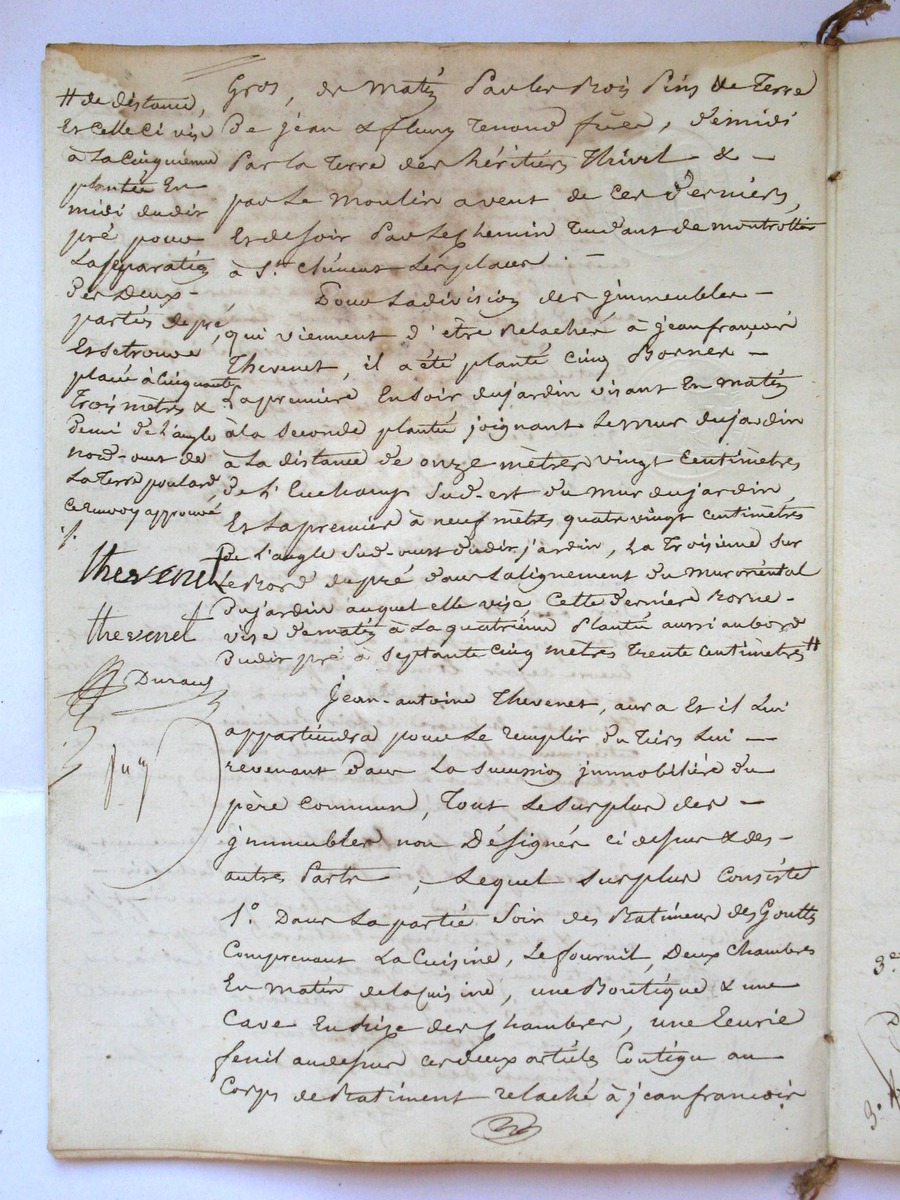 Gros, de matin par les Bois Pins de Terre
de jean & fleury Tenand frère, de midi
par la Terre des héritiers Thivel & —
par le Moulin avent de ces derniers,
Et de soir par le Chemin Tendant de montrottier
à St. Clément Lesplaces . —
Pour la division des jmmeubles —
qui viennent d'être relaché à jeanfrançois
Thevenet, il a été planté cinq Bornes —
La première En soir dujardin visant En matin
à la seconde plantée joignant le mur dujardin
à la distance de onze mètres vingt centimètres
de l' Sud-est du mur dujardin
Et la premier à neuf mètres quatre vingt centimètres
de l'angle Sud-ouest dudit jardin, La Troisième sur
le Bord dupré dans l'alignement du mur oriental
dujardin auquel elle vise, Cette dernière Borne -
vise de matin à la quatrième plantée aussi au bord
dudit pré à septante cinq mètres trente centimètres #
jean-antoine Thevenet, aura Et il lui
appartiendra pour le remplir du Tiers lui —
revenant dans La succession jmmobilière du
père commun, Tout le surplus des —
jmmeubles non Désignés ci dessus & des -
autres Parts, Lequel surplus consiste
1.° Dans la partie soir des Batiments des Gouttes
Comprenant la Cuisine, Le fournil, Deux Chambres
En matin de la cuisine, une Boutique & une
Cave En bize des Chambres, une Ecurie
fenil audessus ces deux articles Contigu au
Corps de Batiment relaché à jeanfrançois
# de distance,
Et celle ci vise
à la cinquième
plantée En
midi dudit
pré pour
la séparation
des deux -
parties de pré,
Et se trouve
placée à Cinquante
Trois mètres &
demi de l'angle
nord-ouest de
la Terre poulard,
ce renvoy approuvé
thevenet
thevenet
Durand
3.e
3.°